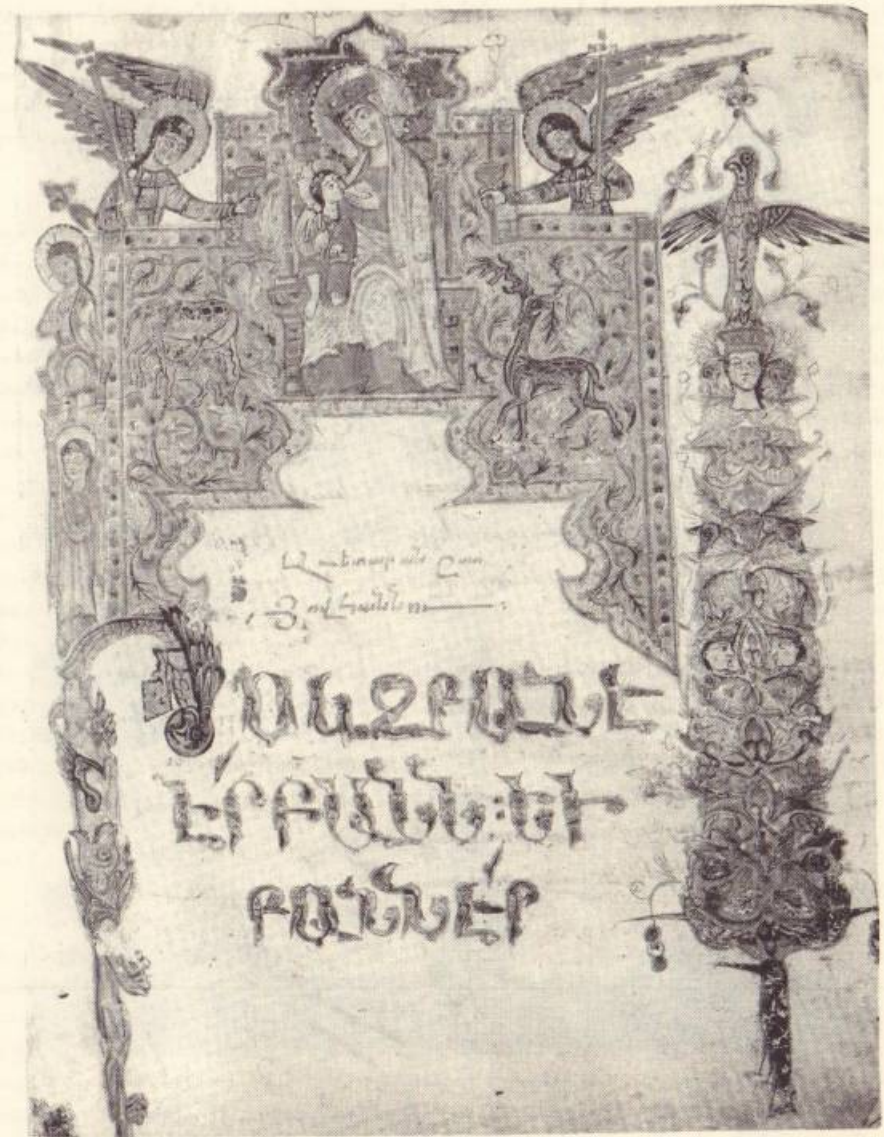 Աւետարան ըստ
Յովհաննու
ԻՍԿԶԲԱՆԷ
ԷՐ ԲԱՆՆ: ԵՒ
ԲԱՆՆ ԷՐ